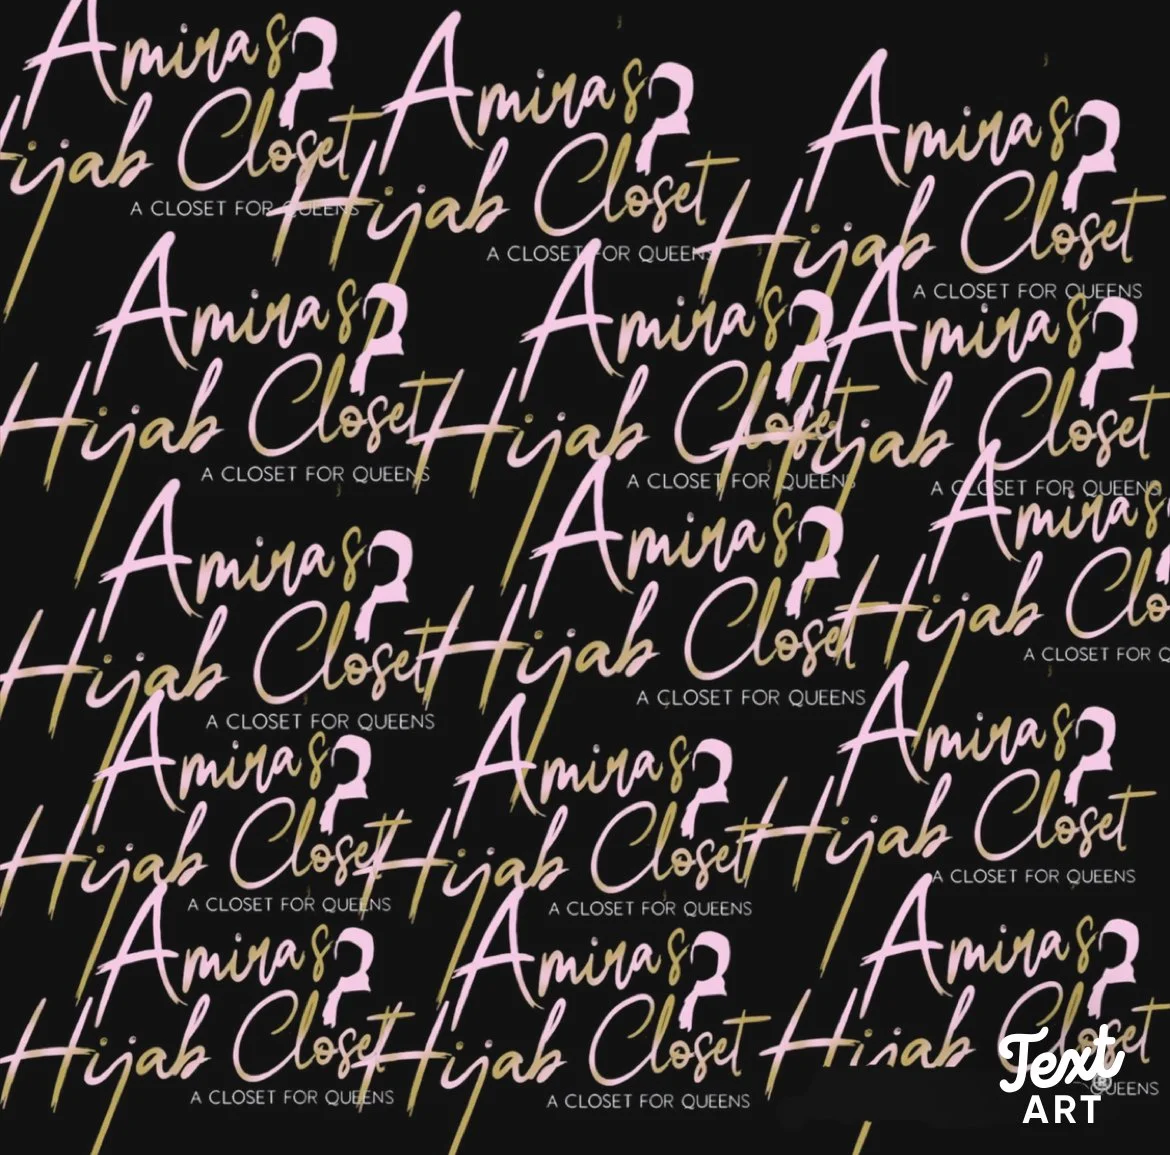 Amiras
Hijab Closet
A CLOSET FOR QUEENS
Amiras
Hijab Closet
A CLOSET FOR QUEENS
Amiras
Hijab Closet
A CLOSET FOR QUEENS
Amiras
Hijab Closet
A CLOSET FOR QUEENS
Amiras
Hijab Closet
A CLOSET FOR QUEENS
Amiras
Hijab Closet
A CLOSET FOR QUEENS
Amiras
Hijab Closet
A CLOSET FOR QUEENS
Amiras
Hijab Closet
A CLOSET FOR QUEENS
Amiras
Hijab Clo
A CLOSET FOR Q
Amiras
Hijab Closet
A CLOSET FOR QUEENS
Amiras
Hijab Closet
A CLOSET FOR QUEENS
Amiras
Hijab Closet
A CLOSET FOR QUEENS
Amiras
Hijab Closet
A CLOSET FOR QUEENS
Amiras
Hijab Closet
A CLOSET FOR QUEENS
Amiras
Hijab Closet
UEENS
Text
ART